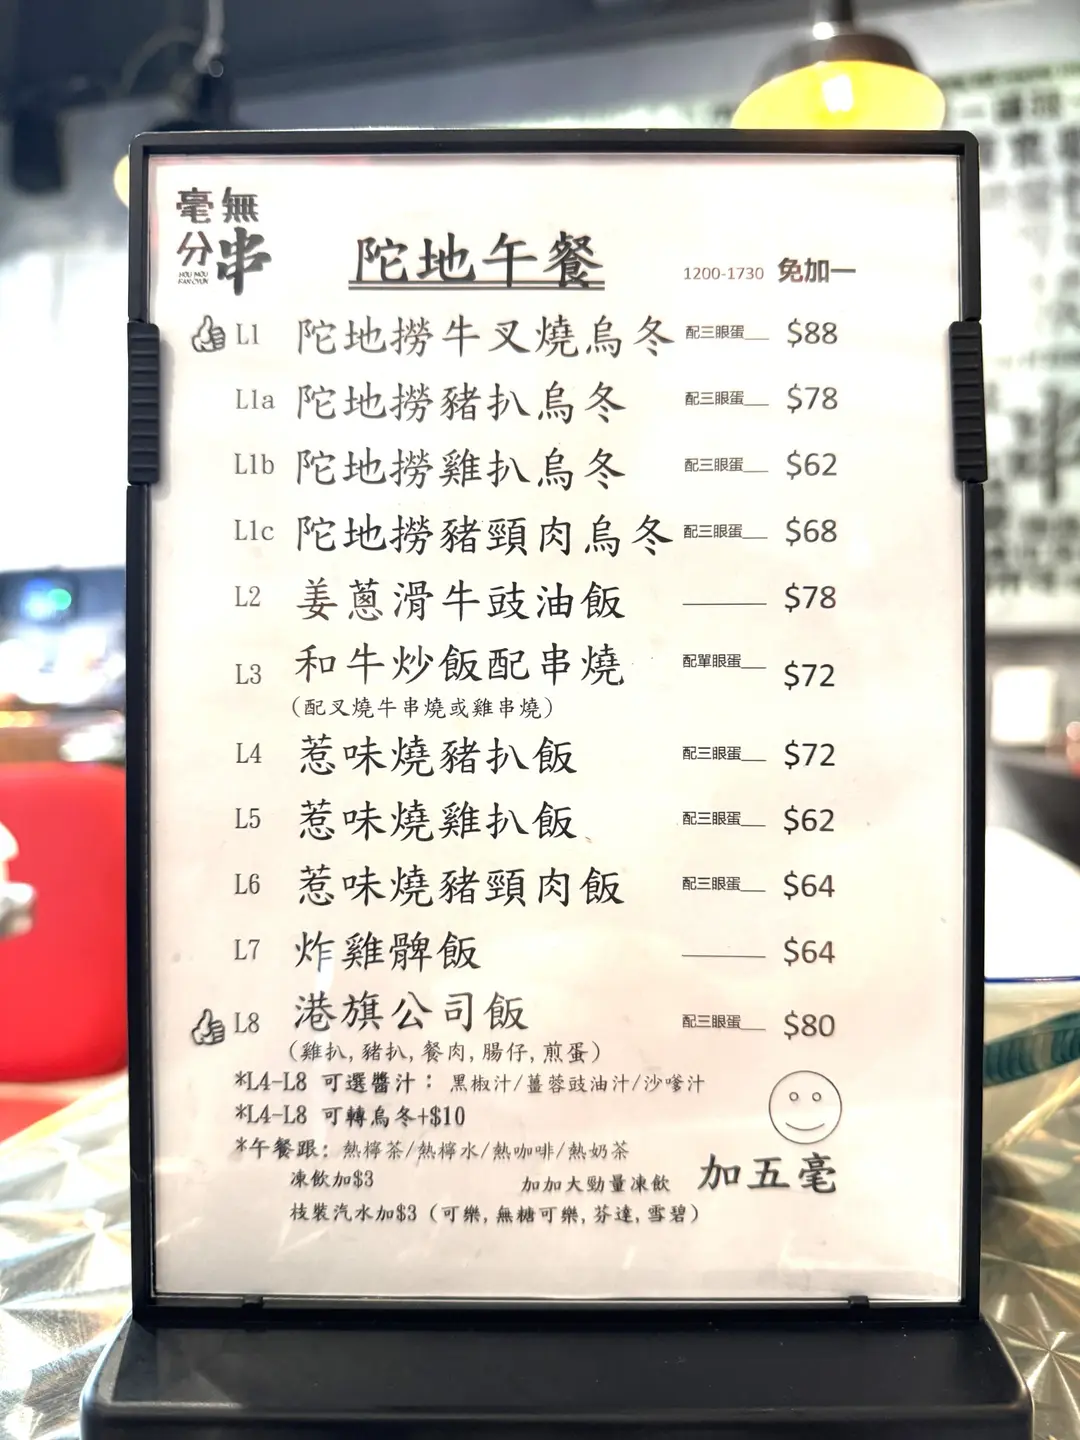 毫無
分串
HOU MOU
FAN CYUN
陀地午餐 1200-1730 免加一
L1 陀地撈牛叉燒烏冬 配三眼蛋__ $88
L1a 陀地撈豬扒烏冬 配三眼蛋__ $78
L1b 陀地撈雞扒烏冬 配三眼蛋__ $62
L1c 陀地撈豬頸肉烏冬 配三眼蛋__ $68
L2 姜蔥滑牛豉油飯 ______ $78
L3 和牛炒飯配串燒 配單眼蛋__ $72
(配叉燒牛串燒或雞串燒)
L4 惹味燒豬扒飯 配三眼蛋__ $72
L5 惹味燒雞扒飯 配三眼蛋__ $62
L6 惹味燒豬頸肉飯 配三眼蛋__ $64
L7 炸雞髀飯 ______ $64
L8 港旗公司飯 配三眼蛋__ $80
(雞扒,豬扒,餐肉,腸仔,煎蛋)
*L4-L8 可選醬汁： 黑椒汁/薑蓉豉油汁/沙嗲汁
*L4-L8 可轉烏冬+$10
*午餐跟: 熱檸茶/熱檸水/熱咖啡/熱奶茶
凍飲加$3 加加大勁量凍飲 加五毫
枝裝汽水加$3 (可樂,無糖可樂,芬達,雪碧)